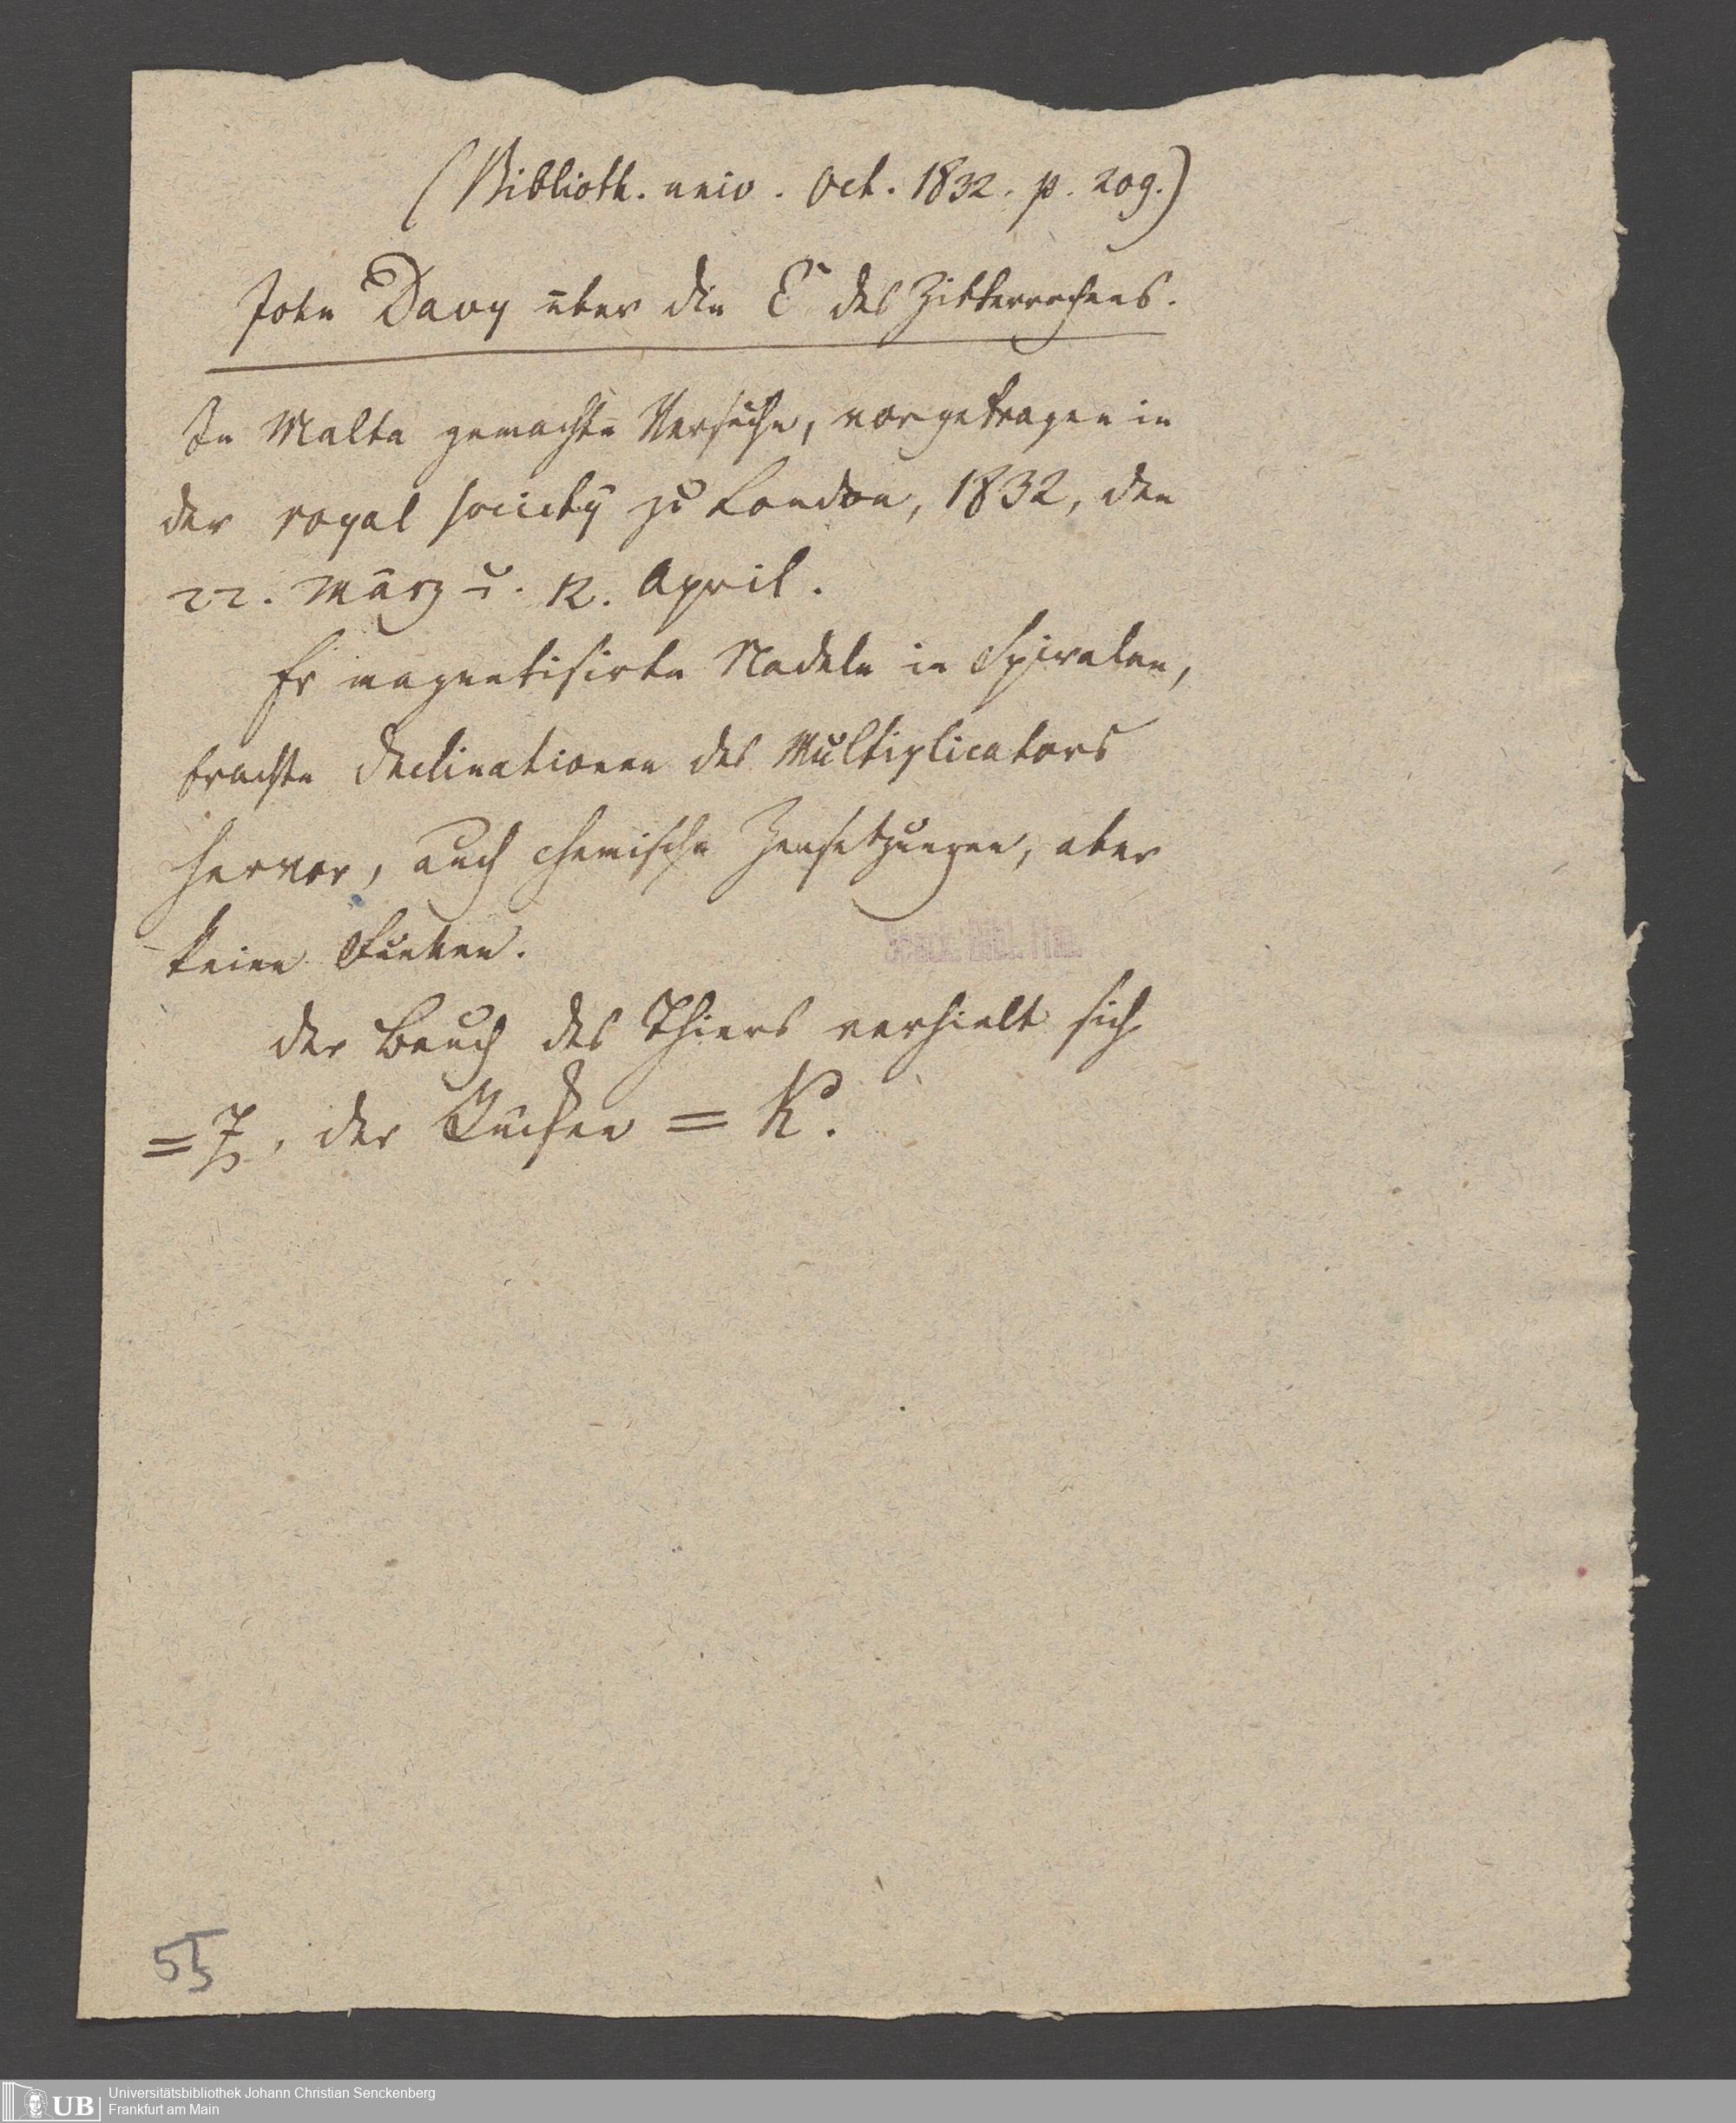 (Biblioth. univ. Oct. 1832. p. 209.)
John Davy über die E des Zitterrochens.
In Malta gemachte Versuche, vorgetragen in
der royal society zu London, 1832, den
22. März u. 12. April.
Er magnetisirte Nadeln in Spiralen,
brachte Declinationen des Multiplicators
hervor, auch chemische Zersetzungen, aber
keine Funken.
Der Bauch des Thiers verhielt sich
= Z, der Rücken = K.
Senck. Bibl. Ffm.
55
UB
Universitätsbibliothek Johann Christian Senckenberg
Frankfurt am Main